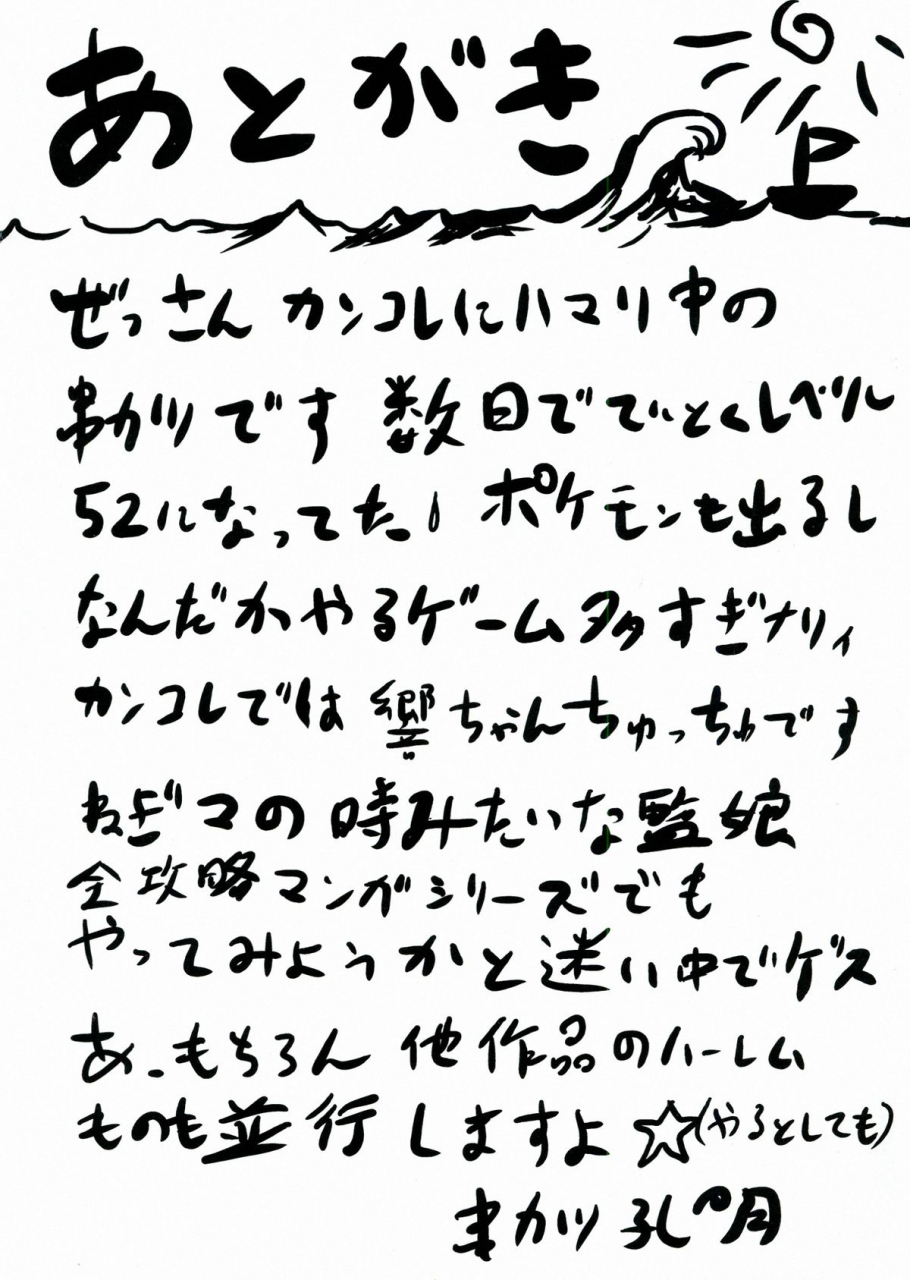 あとがき
ぜっさん カンコレにハマり中の
串カツです 数日でていとくレベル
52になってた! ポケモンも出るし
なんだかやるゲーム多すぎナリィ
カンコレでは 響ちゃんちゅっちゅです
ねぎマの時みたいな監娘
全攻略マンガシリーズでも
やってみようかと迷い中でゲス
あ、もちろん 他作品のハーレム
ものも並行しますよ☆(やるとしても)
串カツ 孔明